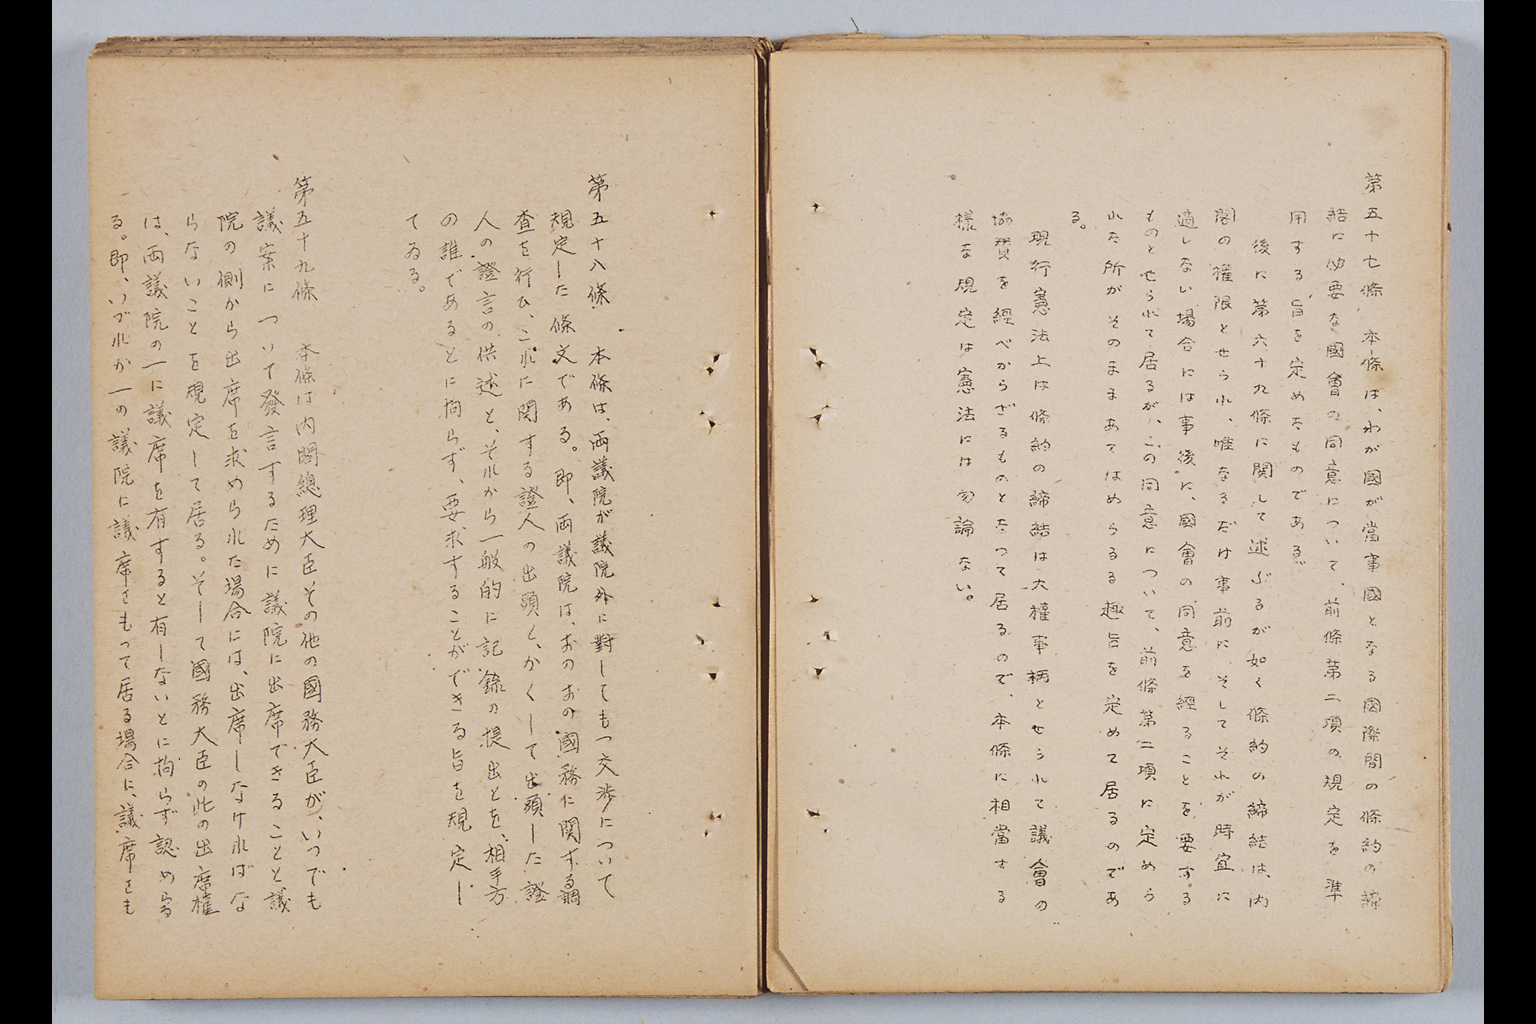 第五十七條　本條は、わが國が當事國となる國際間の條約の締
結に必要な國會の同意について、前條第二項の規定を準
用する旨を定めたものである。
後に第六十九條に関して述ぶるが如く條約の締結は、内
閣の權限とせられ、唯なるだけ事前に、そしてそれが時宜に
適しない場合には事後に、國會の同意を經ることを要する
ものとせられて居るが、この同意について、前條第二項に定めら
れた所がそのままあてはめらるる趣旨を定めて居るのであ
る。
現行憲法上は條約の締結は大權事柄とせられて議會の
協賛を經べからざるものとなつて居るので、本條に相當する
樣な規定は憲法には勿論ない。
第五十八條　本條は、両議院が議院外に對してもつ交渉について
規定した條文である。即、両議院は、おのおの國務に関する調
査を行ひ、これに関する證人の出頭と、かくして出頭した證
人の證言の供述と、それから一般的に記錄の提出とを、相手方
の誰であるとに拘らず、要求することができる旨を規定し
てゐる。
第五十九條　本條は内閣總理大臣その他の國務大臣が、いつでも
議案について發言するために議院に出席できることと議
院の側から出席を求められた場合には、出席しなければな
らないことを規定して居る。そして國務大臣の此の出席權
は、両議院の一に議席を有すると有しないとに拘らず認めらる
る。即、いづれか一の議院に議席をもつて居る場合に、議席をも